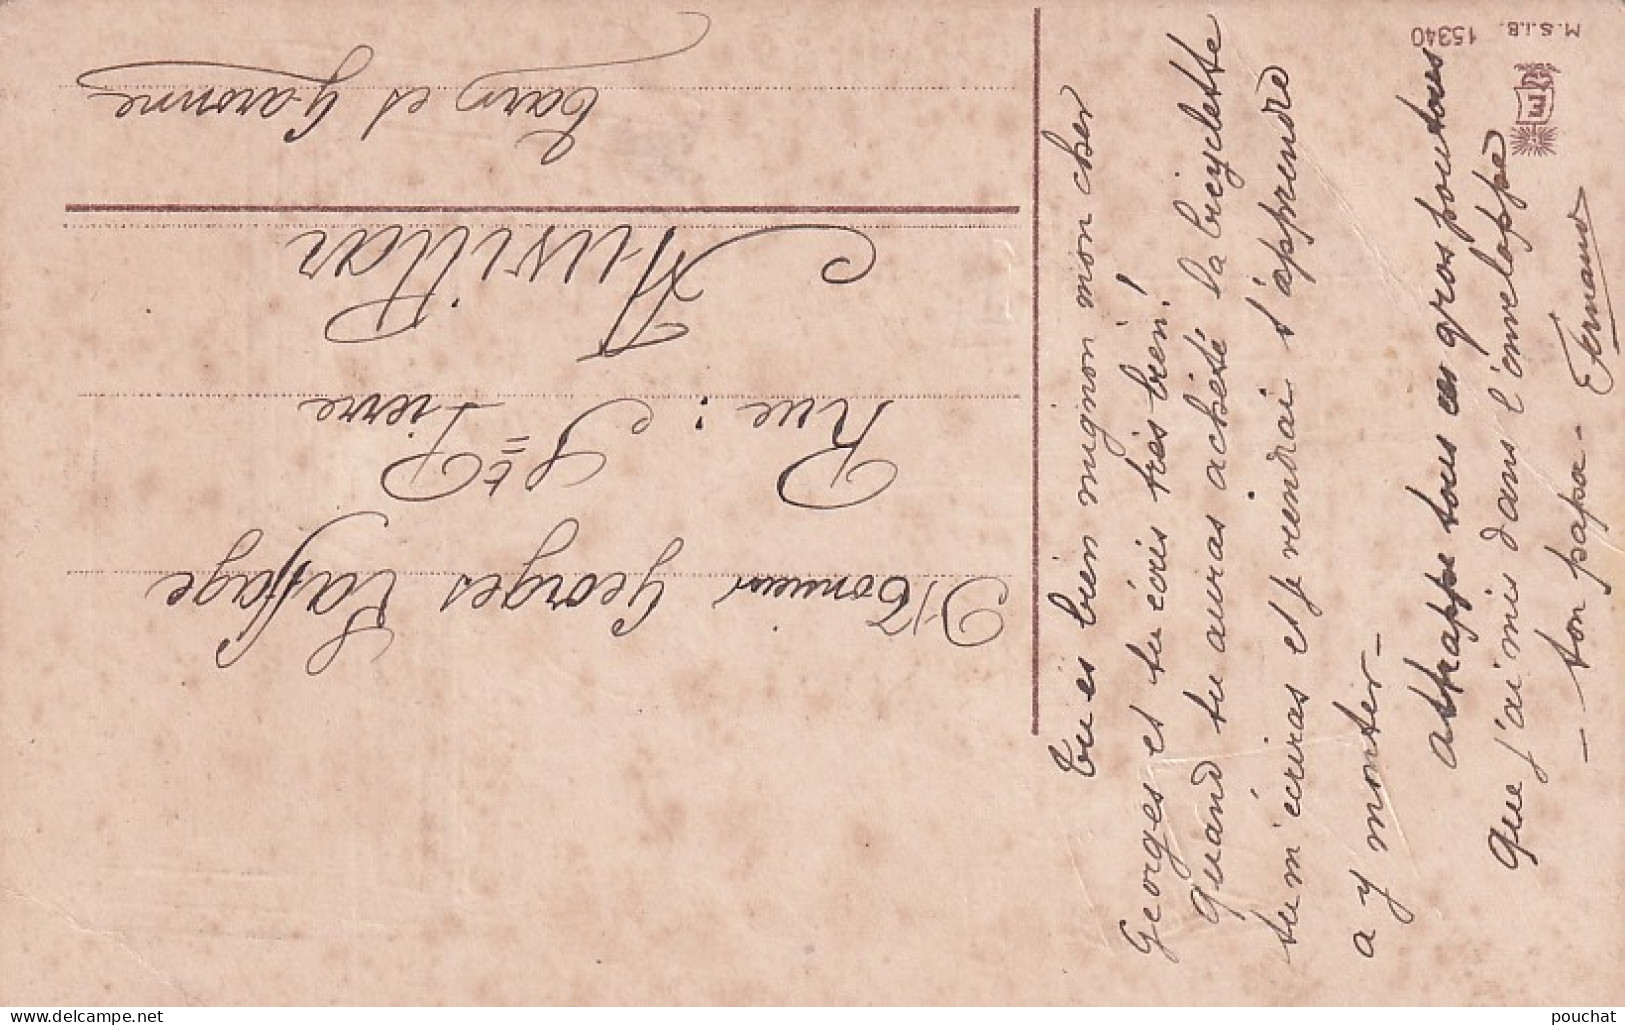 M.S.i.B. 15340
Monsieur Georges Laffage
Rue : St Pierre
Auvillar
Tarn et Garonne
Tu es bien mignon mon cher
Georges et tu écris très bien!
Quand tu auras acheté la bicyclette
tu m'écriras et je viendrai t'apprendre
a y monter -
Attrappe tous ces gros poutous
que j'ai mis dans l'enveloppe
- ton papa - Fernand
pouchat